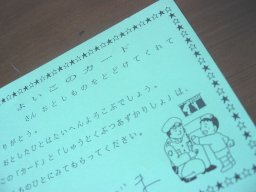 よいこのカード
さん おとしものをとどけてくれて
りがとう。
おとしたひとはたいへんよろこぶでしょう。
この「カード」と「しゅうとくぶつあずかりしょ」は、
ちのひとにみてもらってください。